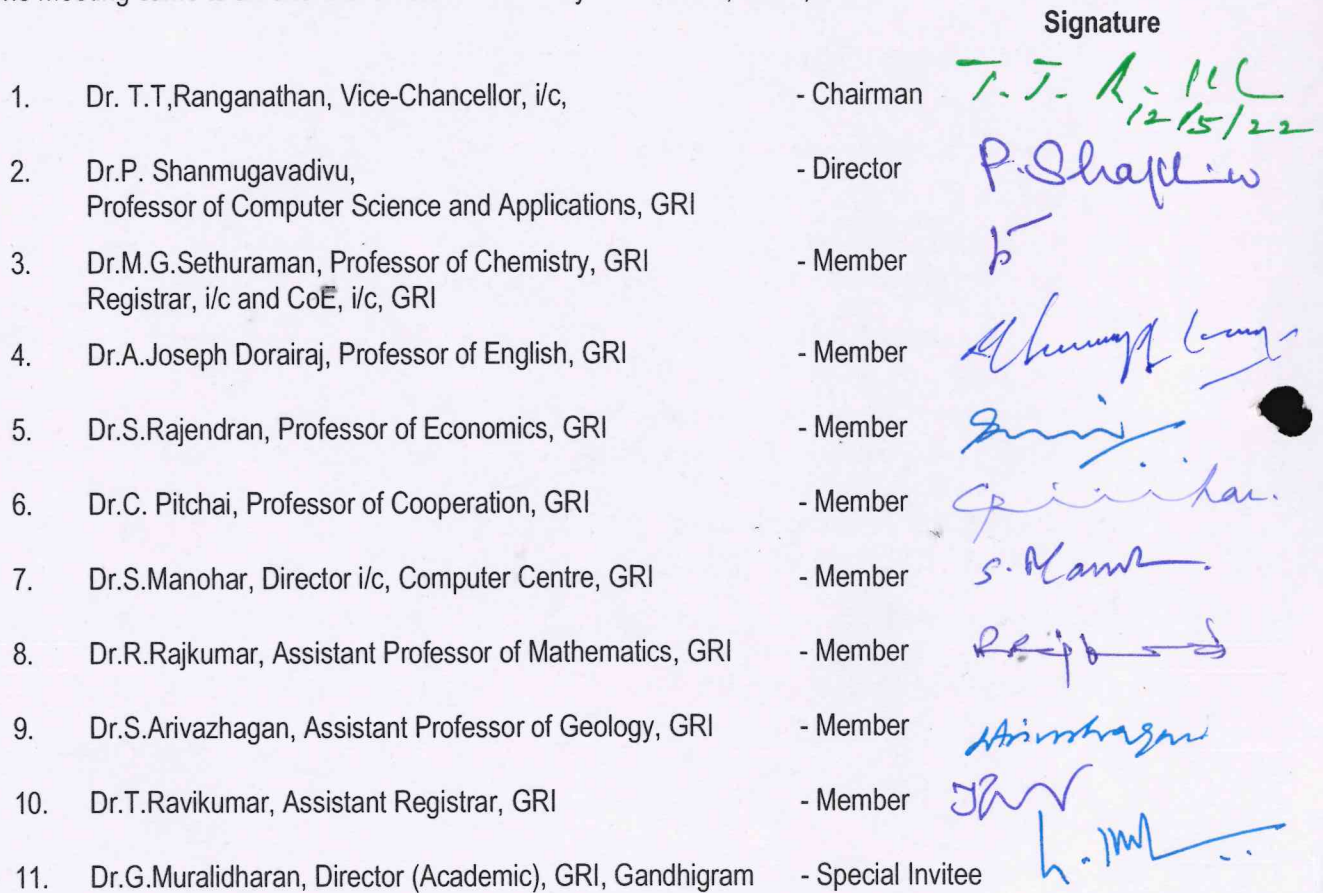 Signature
1. Dr. T.T,Ranganathan, Vice-Chancellor, i/c, - Chairman
12/5/22
2. Dr.P. Shanmugavadivu, - Director
Professor of Computer Science and Applications, GRI
3. Dr.M.G.Sethuraman, Professor of Chemistry, GRI - Member
Registrar, i/c and CoE, i/c, GRI
4. Dr.A.Joseph Dorairaj, Professor of English, GRI - Member
5. Dr.S.Rajendran, Professor of Economics, GRI - Member
6. Dr.C. Pitchai, Professor of Cooperation, GRI - Member
7. Dr.S.Manohar, Director i/c, Computer Centre, GRI - Member
8. Dr.R.Rajkumar, Assistant Professor of Mathematics, GRI - Member
9. Dr.S.Arivazhagan, Assistant Professor of Geology, GRI - Member
10. Dr.T.Ravikumar, Assistant Registrar, GRI - Member
11. Dr.G.Muralidharan, Director (Academic), GRI, Gandhigram - Special Invitee